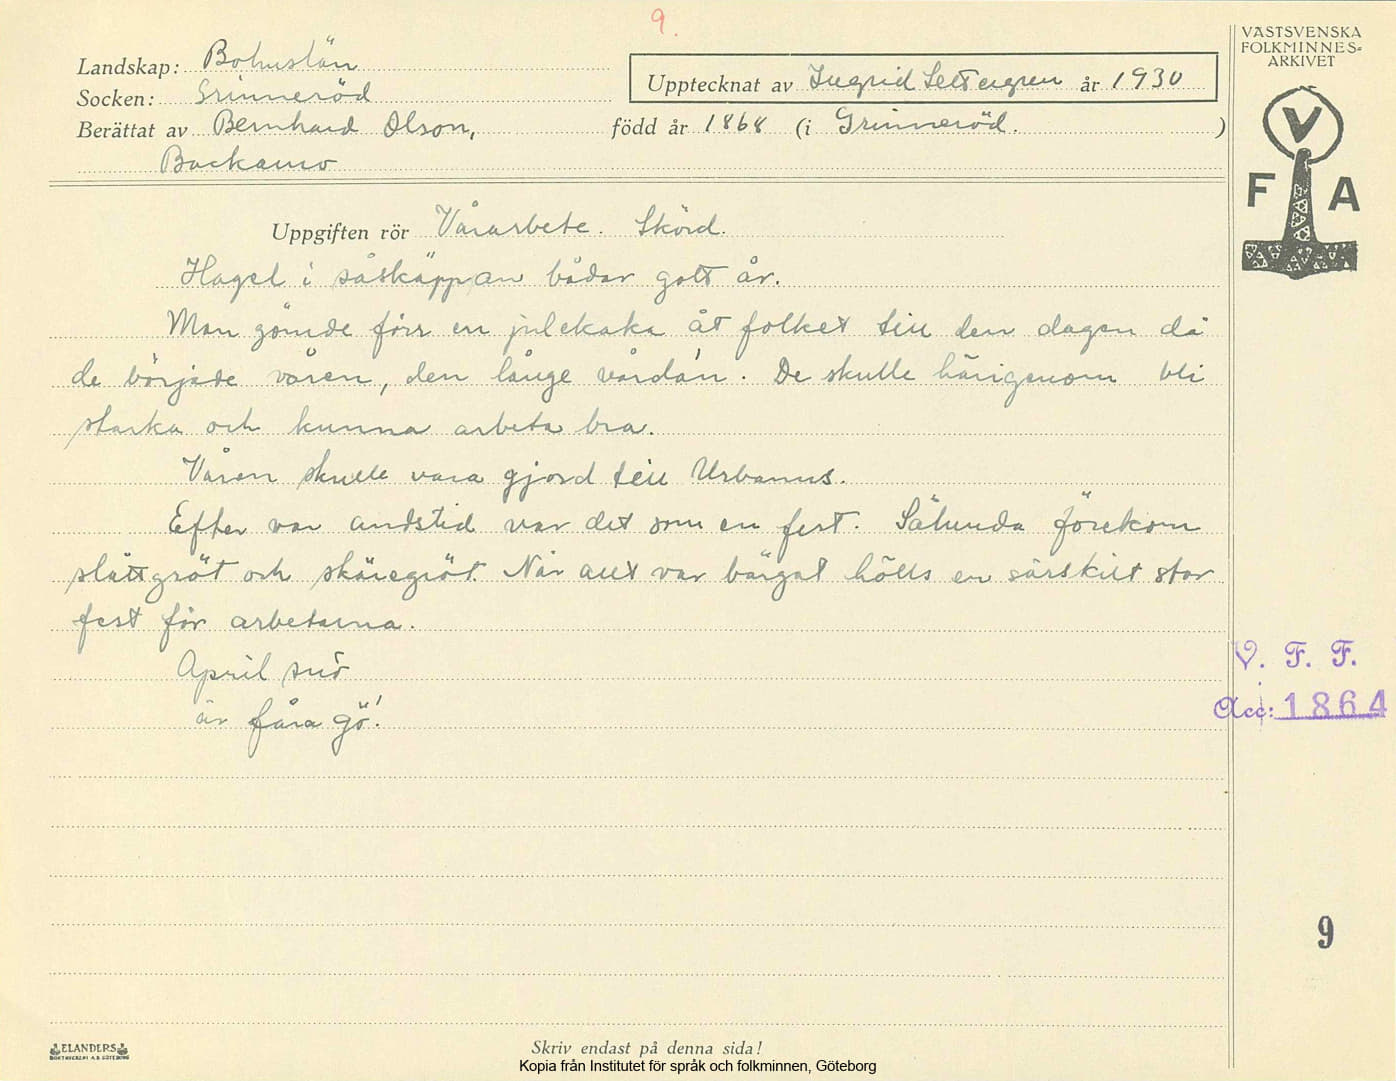 9.
VÄSTSVENSKA
FOLKMINNES-
ARKIVET
Landskap: Bohuslän
Upptecknat av Ingrid Settergren år 1930
Socken: Grinneröd
Berättat av Bernhard Olson, född år 1868 (i Grinneröd. )
Backamo
V
F A
Uppgiften rör Vårarbete. Skörd.
Hagel i såskäppan bådar gott år.
Man gömde förr en julekaka åt folket till den dagen då
de började våren, den långe vårda'n. De skulle härigenom bli
starka och kunna arbeta bra.
Våren skulle vara gjord till Urbanus.
Efter var andstid var det som en fest. Sålunda förekom
slåttgröt och skäregröt. När allt var bärgat hölls en särskilt stor
fest för arbetarna.
April snö
är fåra gö'!
V. F. F.
Acc: 1864
9
ELANDERS
BOKTRYCKERI A.B. GÖTEBORG
Skriv endast på denna sida!
Kopia från Institutet för språk och folkminnen, Göteborg